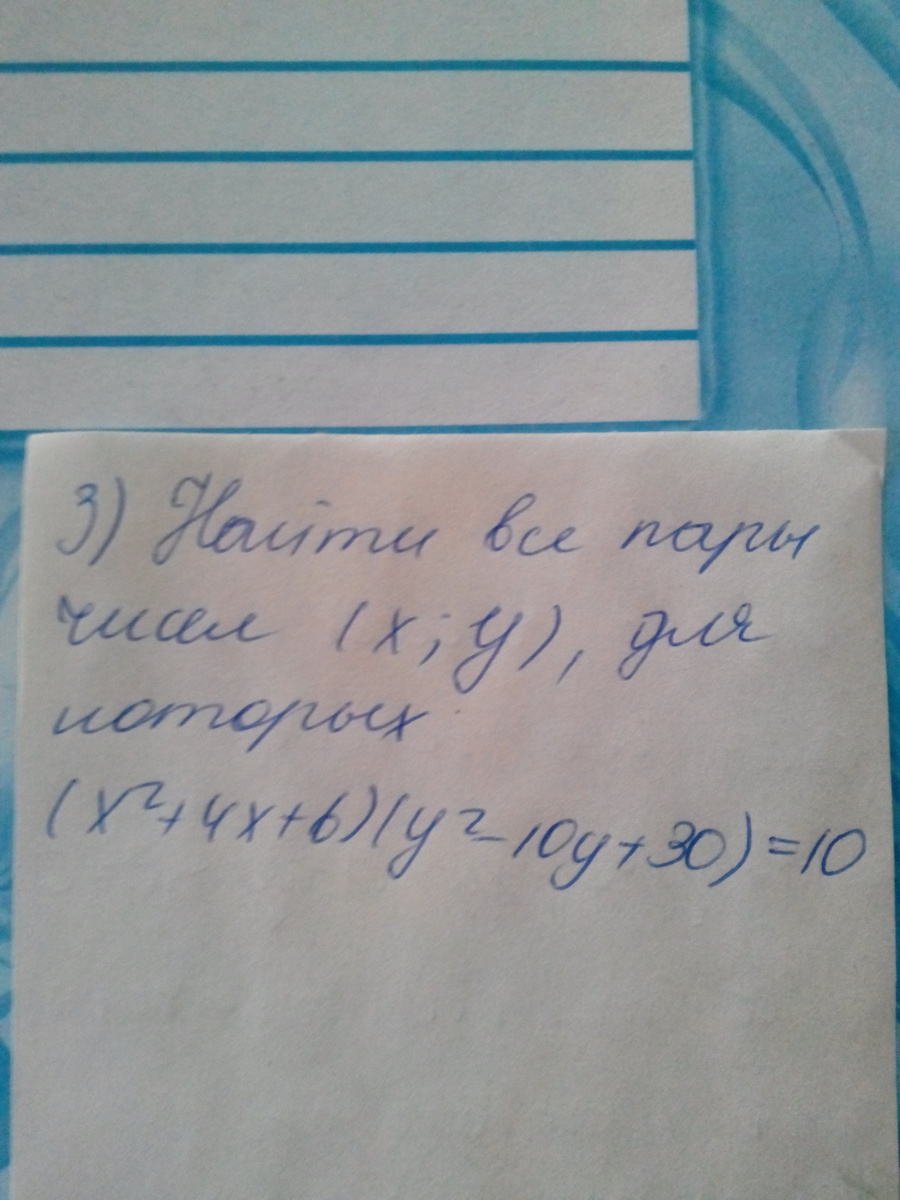 3) Найти все пары
чисел (x; y), для
которых
(x²+4x+6)(y²-10y+30)=10